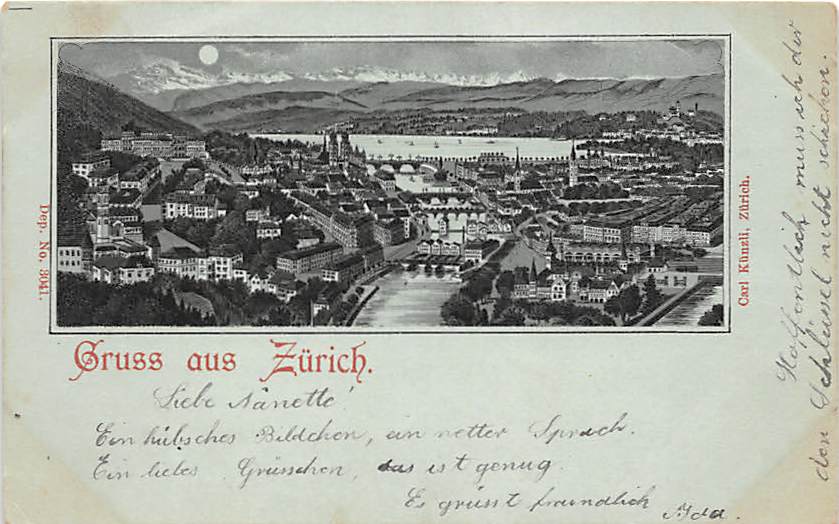 Dep. No. 3041.
Carl Künzli, Zürich.
Gruss aus Zürich.
Liebe Nanette!
Ein hübsches Bildchen, ein netter Spruch.
Ein liebes Grüsschen, das ist genug.
Es grüsst freundlich Ida.
Hoffentlich muss ich dir
den Schlüssel nicht schicken.